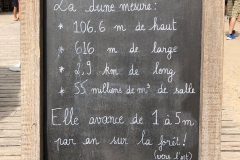 La dune mesure :
* 106.6 m de haut
* 616 m de large
* 2,9 km de long
* 55 millions de m³ de sable
Elle avance de 1 à 5 m
par an sur la forêt !
(vers l'est)